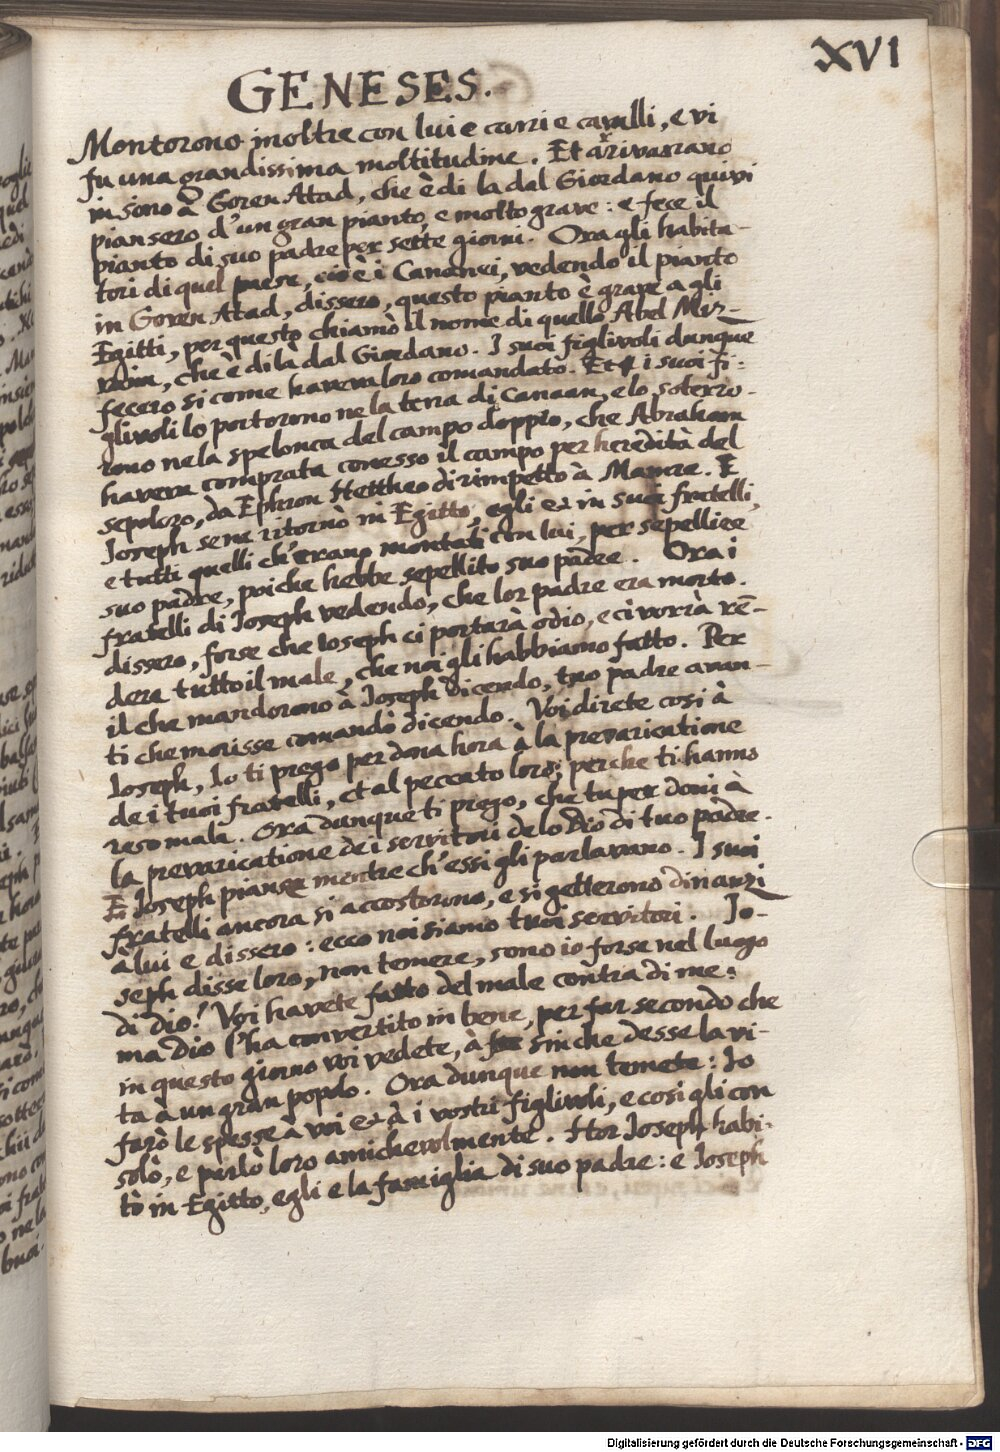 XVI
GENESES.
Montorono inoltre con lui e carri e cavalli, e vi
fu una grandissima moltitudine. Et arrivarano
in sino à Goren Atad, che è di la dal Giordano quivi
piansero d'un gran pianto, e molto grave: e fece il
pianto di suo padre per sette giorni. Ora gli habita-
tori di quel paese, cioè i Cananei, vedendo il pianto
in Goren Atad, dissero, questo pianto è grave a gli
Egitti, per questo chiamò il nome di quello Abel Miz-
raim, che è di là dal Giordano. I suoi figlivoli dunque
fecero si come haveva loro comandato. Et i suoi fi-
glivoli lo portorono ne la terra di Canaan, e lo soterro-
rono ne la spelonca del campo doppio, che Abraham
havera comprata conesso il campo per heredità del
sepolcro, da Ephron Hettheo dirimpetto à Mamre. E
Ioseph se ne ritornò in Egitto, egli et in suoi fratelli,
e tutti quelli ch'erano montati con lui, per sepellire
suo padre, poiche hebbe sepellito suo padre. Ora i
fratelli di Ioseph vedendo, che lor padre era morto.
dissero, forse che Ioseph ci portarà odio, e ci vorià rē-
dere tutto il male, che noi gli habbiamo fatto. Per
il che mandorono à Ioseph dicendo, tuo padre avan-
ti che morisse comandò dicendo. Voi direte cosi à
Ioseph, Io ti prego perdona hora à la prevaricatione
de i tuoi fratelli, et al peccato loro; perche ti hanno
reso male. Ora dunque ti prego, che tu perdoni à
la prevaricatione de i servitori de lo Dio di tuo padre.
E Ioseph pianse mentre ch'essi gli parlavano. I suoi
fratelli ancora si accostorono, e si getterono dinanzi
à lui e dissero: ecco noi siamo tuoi servitori. Io-
seph disse loro, non temere, sono io forse nel luogo
di Dio? Voi havete fatto del male contra di me:
ma Dio l'ha convertito in bene, per far secondo che
in questo giorno voi vedete, à sin che desse la vi-
ta à un gran popolo. Ora dunque non temete: Io
farò le spesse à voi et à i vostri figlivoli, e cosi gli con
solò, e parlò loro amichevolmente. Hor Ioseph habi-
tò in Egitto, egli e la famiglia di suo padre: e Ioseph
Digitalisierung gefördert durch die Deutsche Forschungsgemeinschaft - DFG